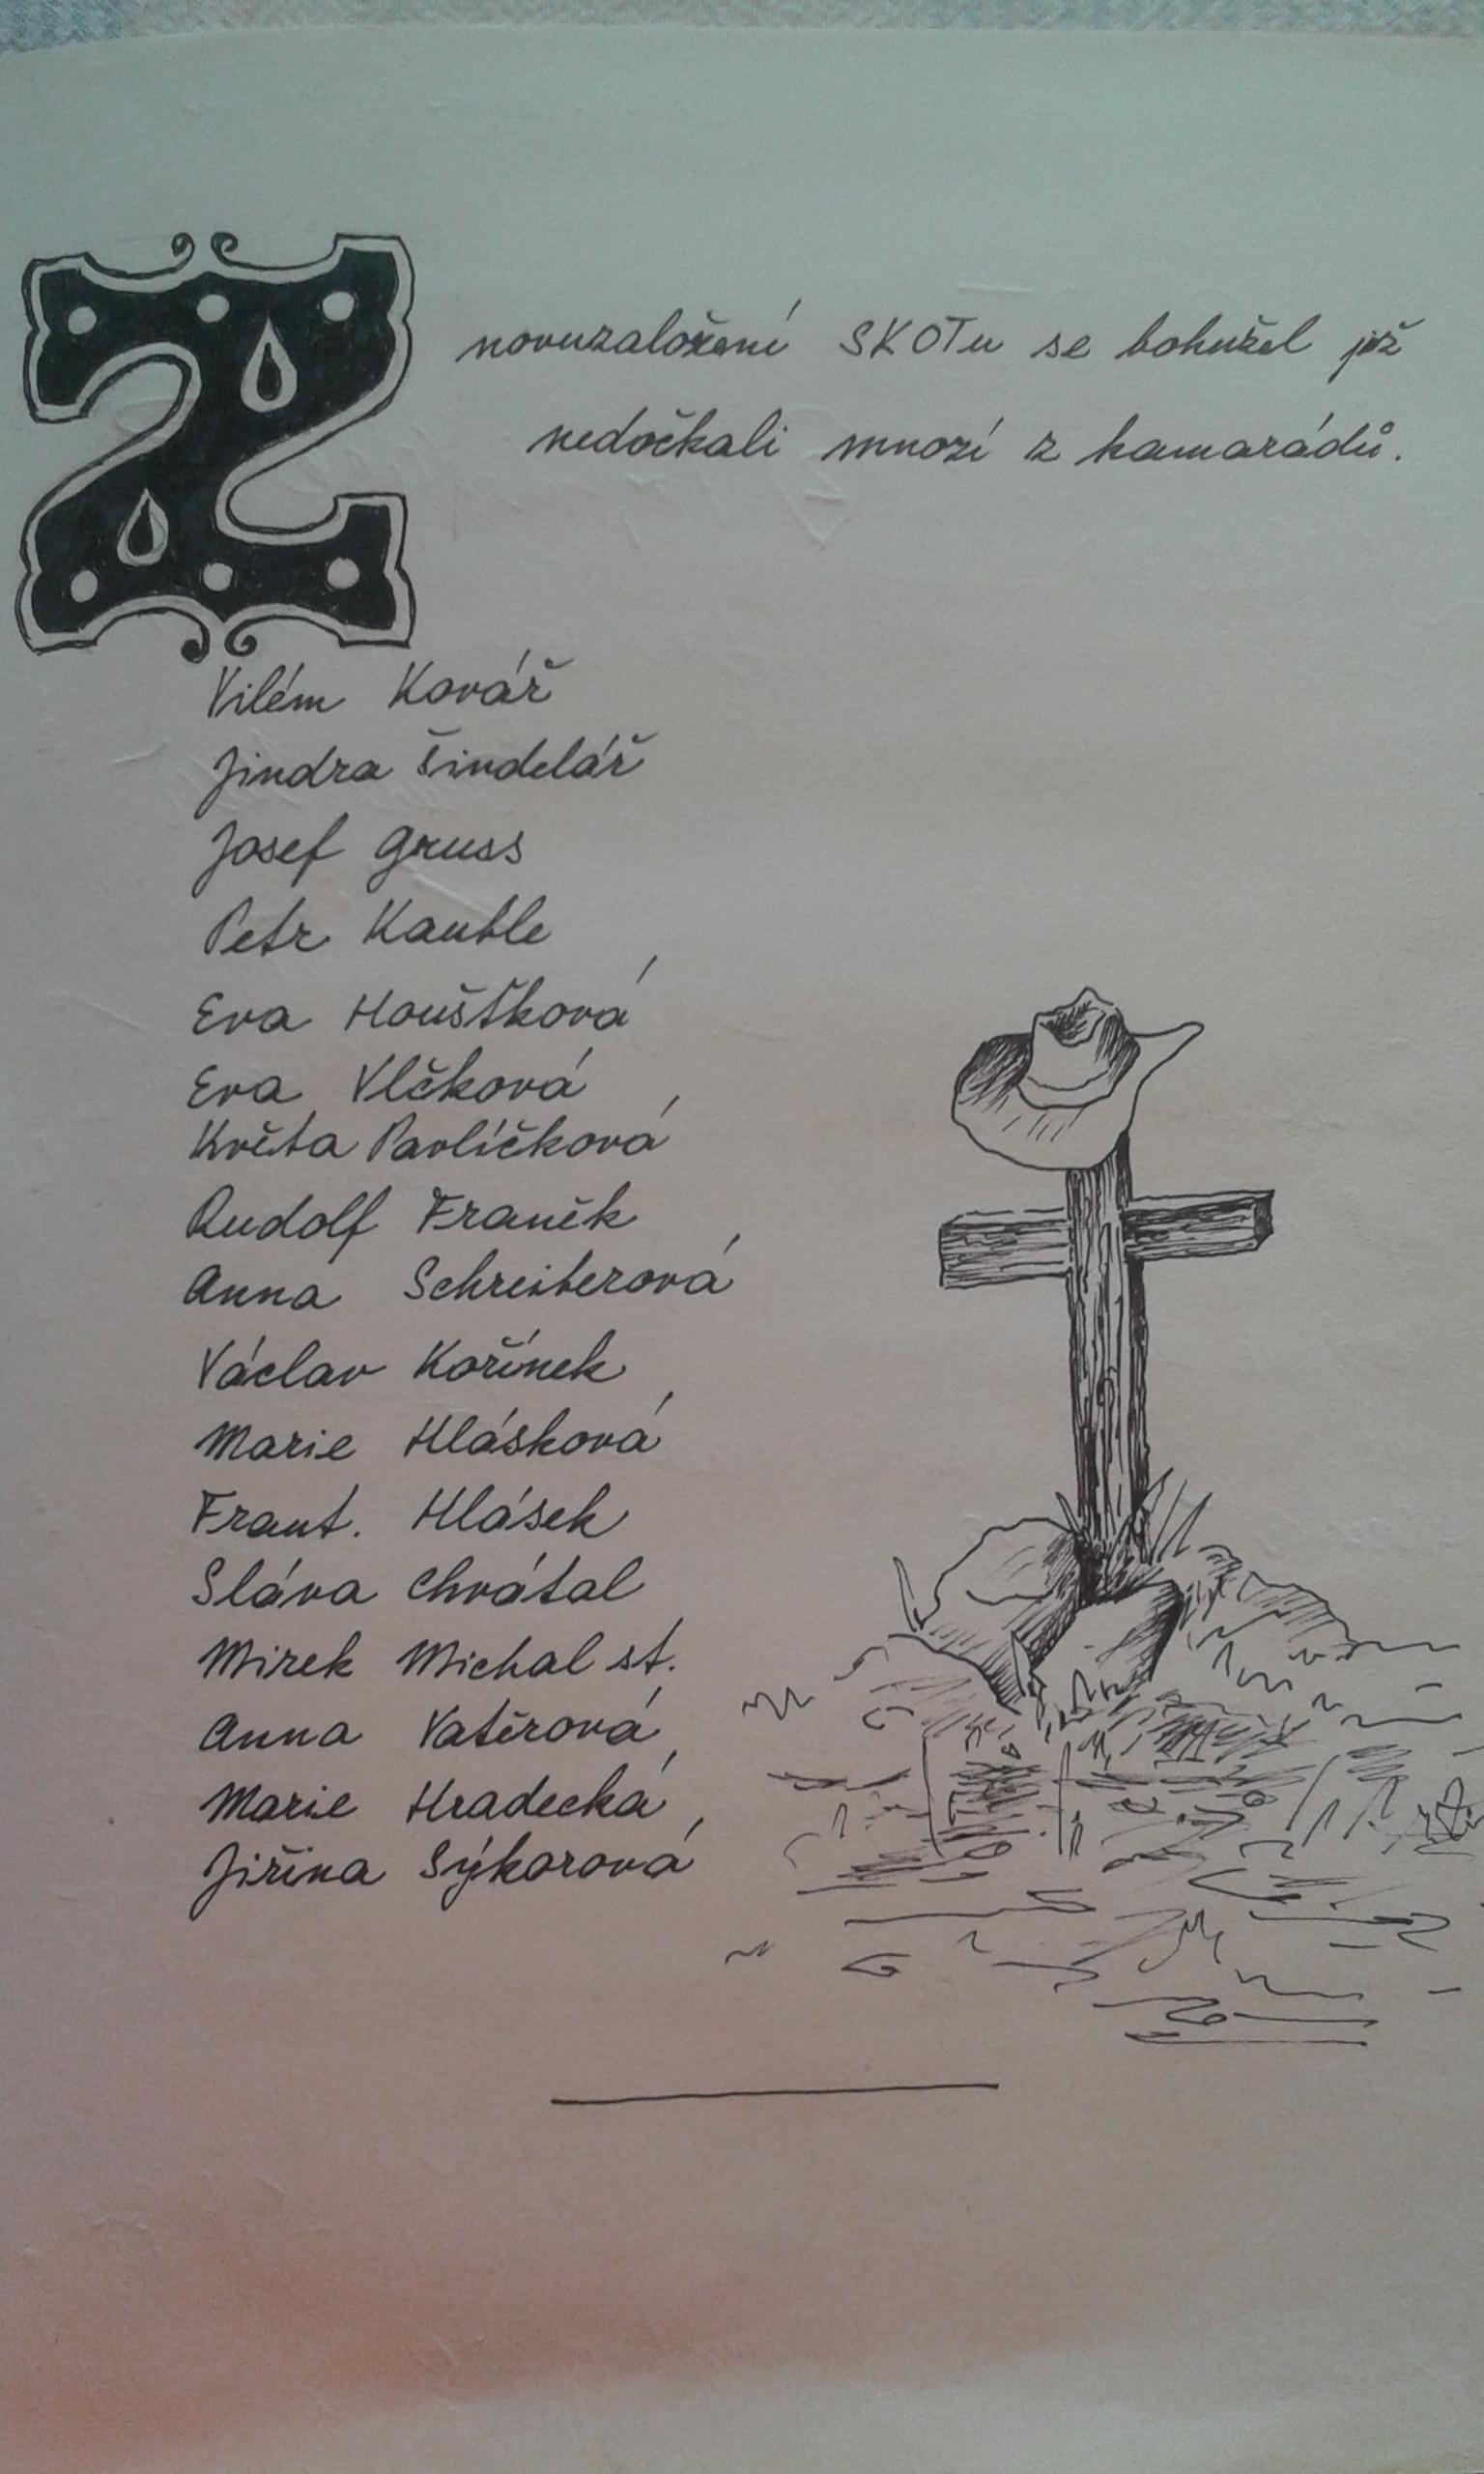 Znovuzaložení SKOTu se bohužel již
nedočkali mnozí z kamarádů.
Vilém Kovář
Jindra Šindelář
Josef Gruss
Petr Kauble
Eva Houšťková
Eva Vlčková
Květa Pavlíčková
Rudolf Franěk
Anna Schreiberová
Václav Kořínek
Marie Hlásková
Frant. Hlásek
Sláva Chvátal
Mirek Michal st.
Anna Vatěrová
Marie Hradecká
Jiřina Sýkorová